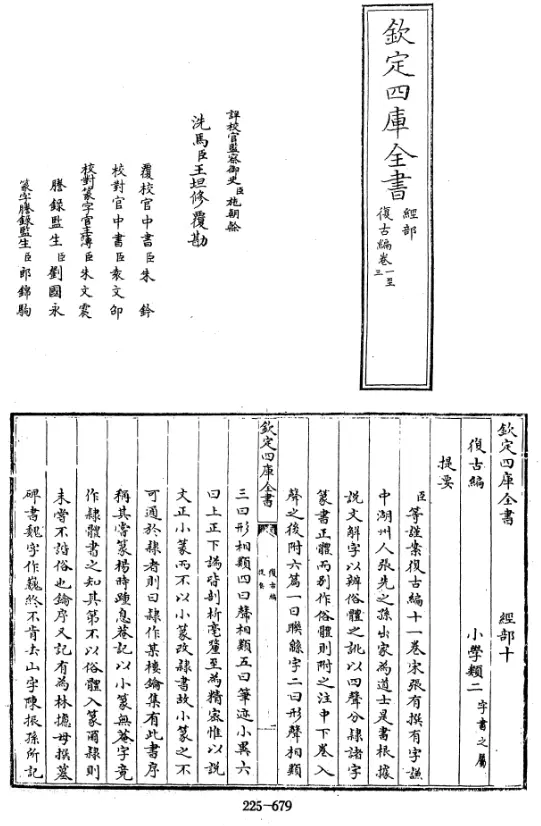 欽定四庫全書
經部
復古編卷一至三
詳校官監察御史臣施朝幹
洗馬臣王坦修覆勘
覆校官中書臣朱鈐
校對官中書臣袁文邵
校對篆字官主簿臣朱文震
謄錄監生臣劉國永
篆字謄錄監生臣郎錦騊
欽定四庫全書 經部十
復古編 小學類二字書之屬
提要
臣等謹案復古編十一卷宋張有撰有字謙
中湖州人張先之孫出家為道士是書根據
說文解字以辨俗體之訛以四聲分隸諸字
篆書正體而別作俗體則附之注中下卷入
聲之後附六篇一曰聯緜字二曰形聲相類
欽定四庫全書
復古編
提要
一
三曰形相類四曰聲相類五曰筆迹小異六
曰上正下譌皆剖析毫釐至為精宻惟以說
文正小篆而不以小篆改隸書故小篆之不
可通於隸者則曰隸作某樓鑰集有此書序
稱其嘗篆楊時踵息菴記以小篆無菴字竟
作隸體書之知其第不以俗體入篆爾隸則
未嘗不諧俗也鑰序又記有為林攄母撰墓
碑書魏字作巍終不肯去山字陳振孫所記
225-679